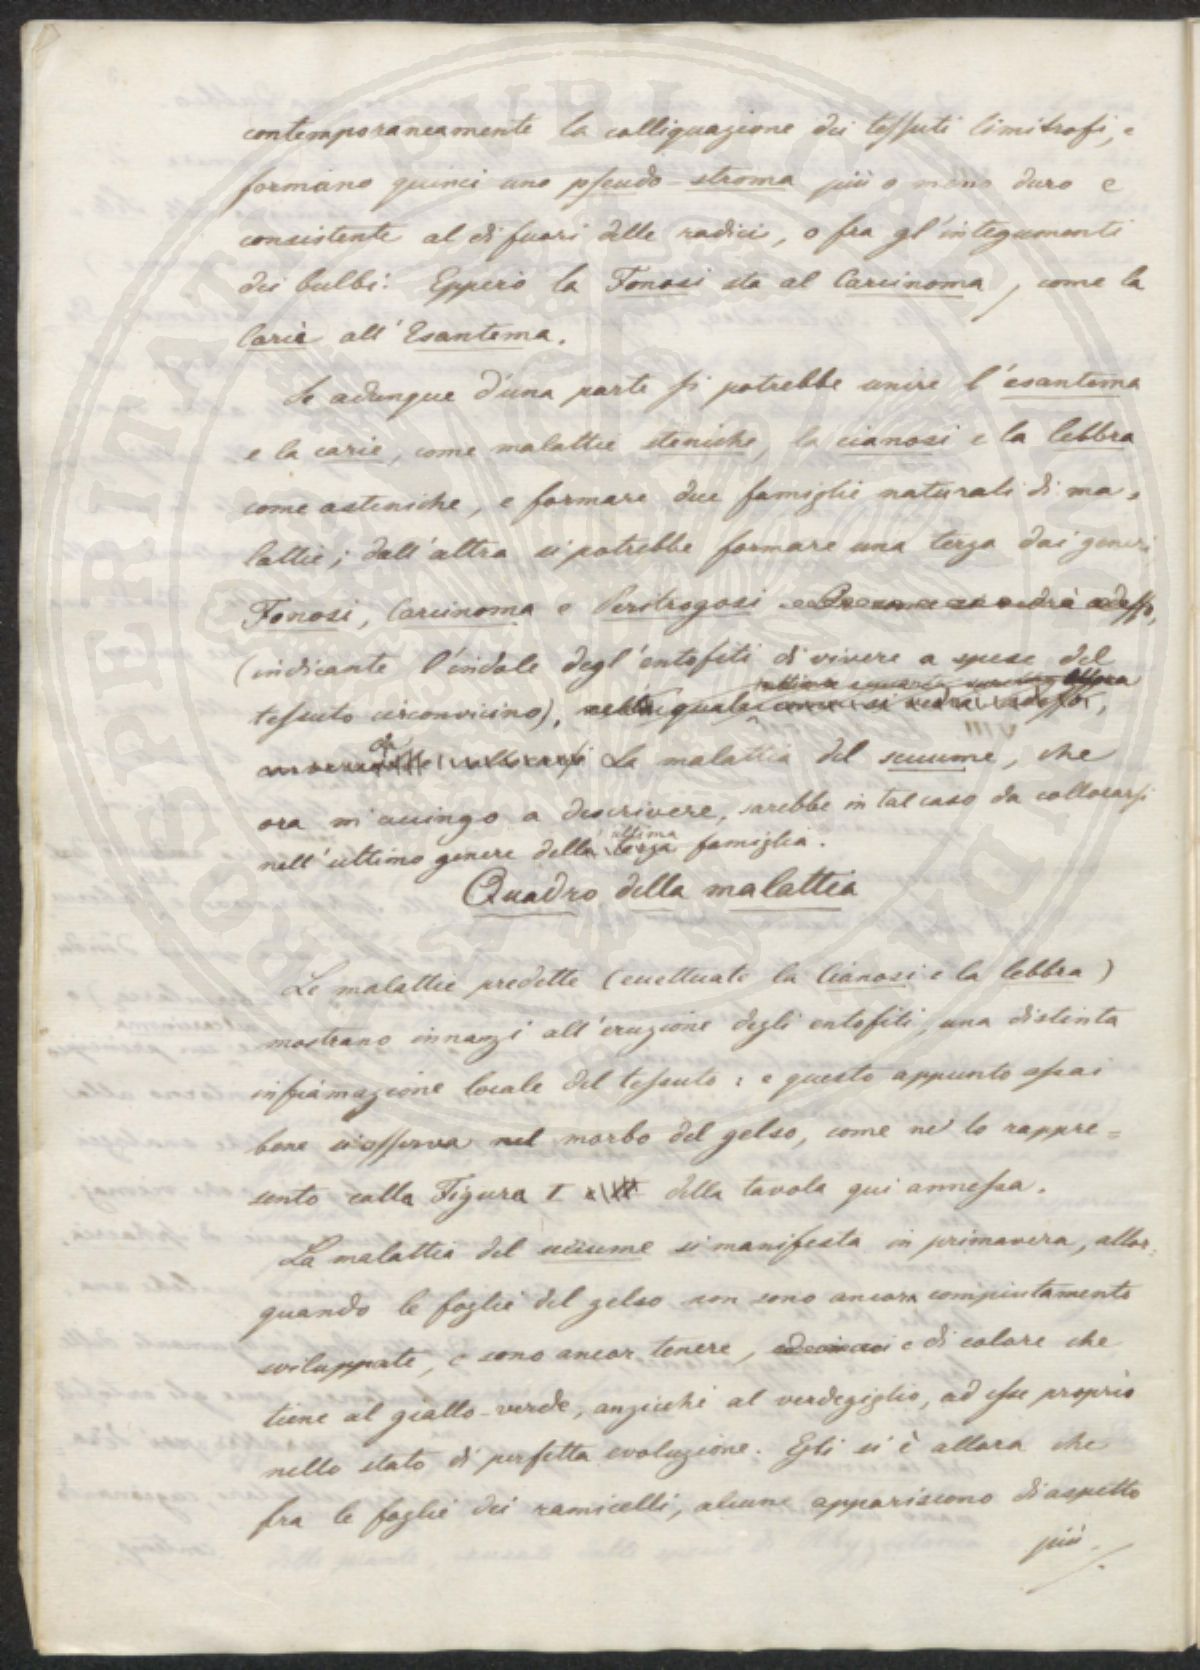 contemporaneamente la colliquazione dei tessuti limitrofi, e
formano quinci uno pseudo-stroma più o meno duro e
consistente al di fuori delle radici, o fra gl'integumenti
dei bulbi. Epperò la Fonosi sta al Carcinoma, come la
Carie all'Esantema.
Se adunque d'una parte si potrebbe unire l'esantema
e la carie, come malattie steniche, la cianosi e la lebbra
come asteniche, e formare due famiglie naturali di ma-
lattie; dall'altra si potrebbe formare una terza dai generi
Fonosi, Carcinoma e Peritrogosi
(indicante l'indole degl'entofiti di vivere a spese del
tessuto circonvicino),
La malattia del seccume, che
ora m'accingo a descrivere, sarebbe in tal caso da collocarsi
ultima
nell'ultimo genere della terza famiglia.
Quadro della malattia
Le malattie predette (eccettuate la Cianosi e la lebbra)
mostrano innanzi all'eruzione degli entofiti, una distinta
infiamazione locale del tessuto; e questo appunto assai
bene si osserva nel morbo del gelso, come ne lo rappre=
sento colla Figura I della tavola qui annessa.
La malattia del seccume si manifesta in primavera, allor=
quando le foglie del gelso non sono ancora compiutamente
sviluppate, e sono ancor tenere, e di colore che
tiene al giallo-verde, anzicchè al verdegiglio, ad esse proprio
nello stato di perfetta evoluzione. Egli si è allora che
fra le foglie dei ramicelli, alcune appariscono di aspetto
più
PROSPERITATI PVBLICAE